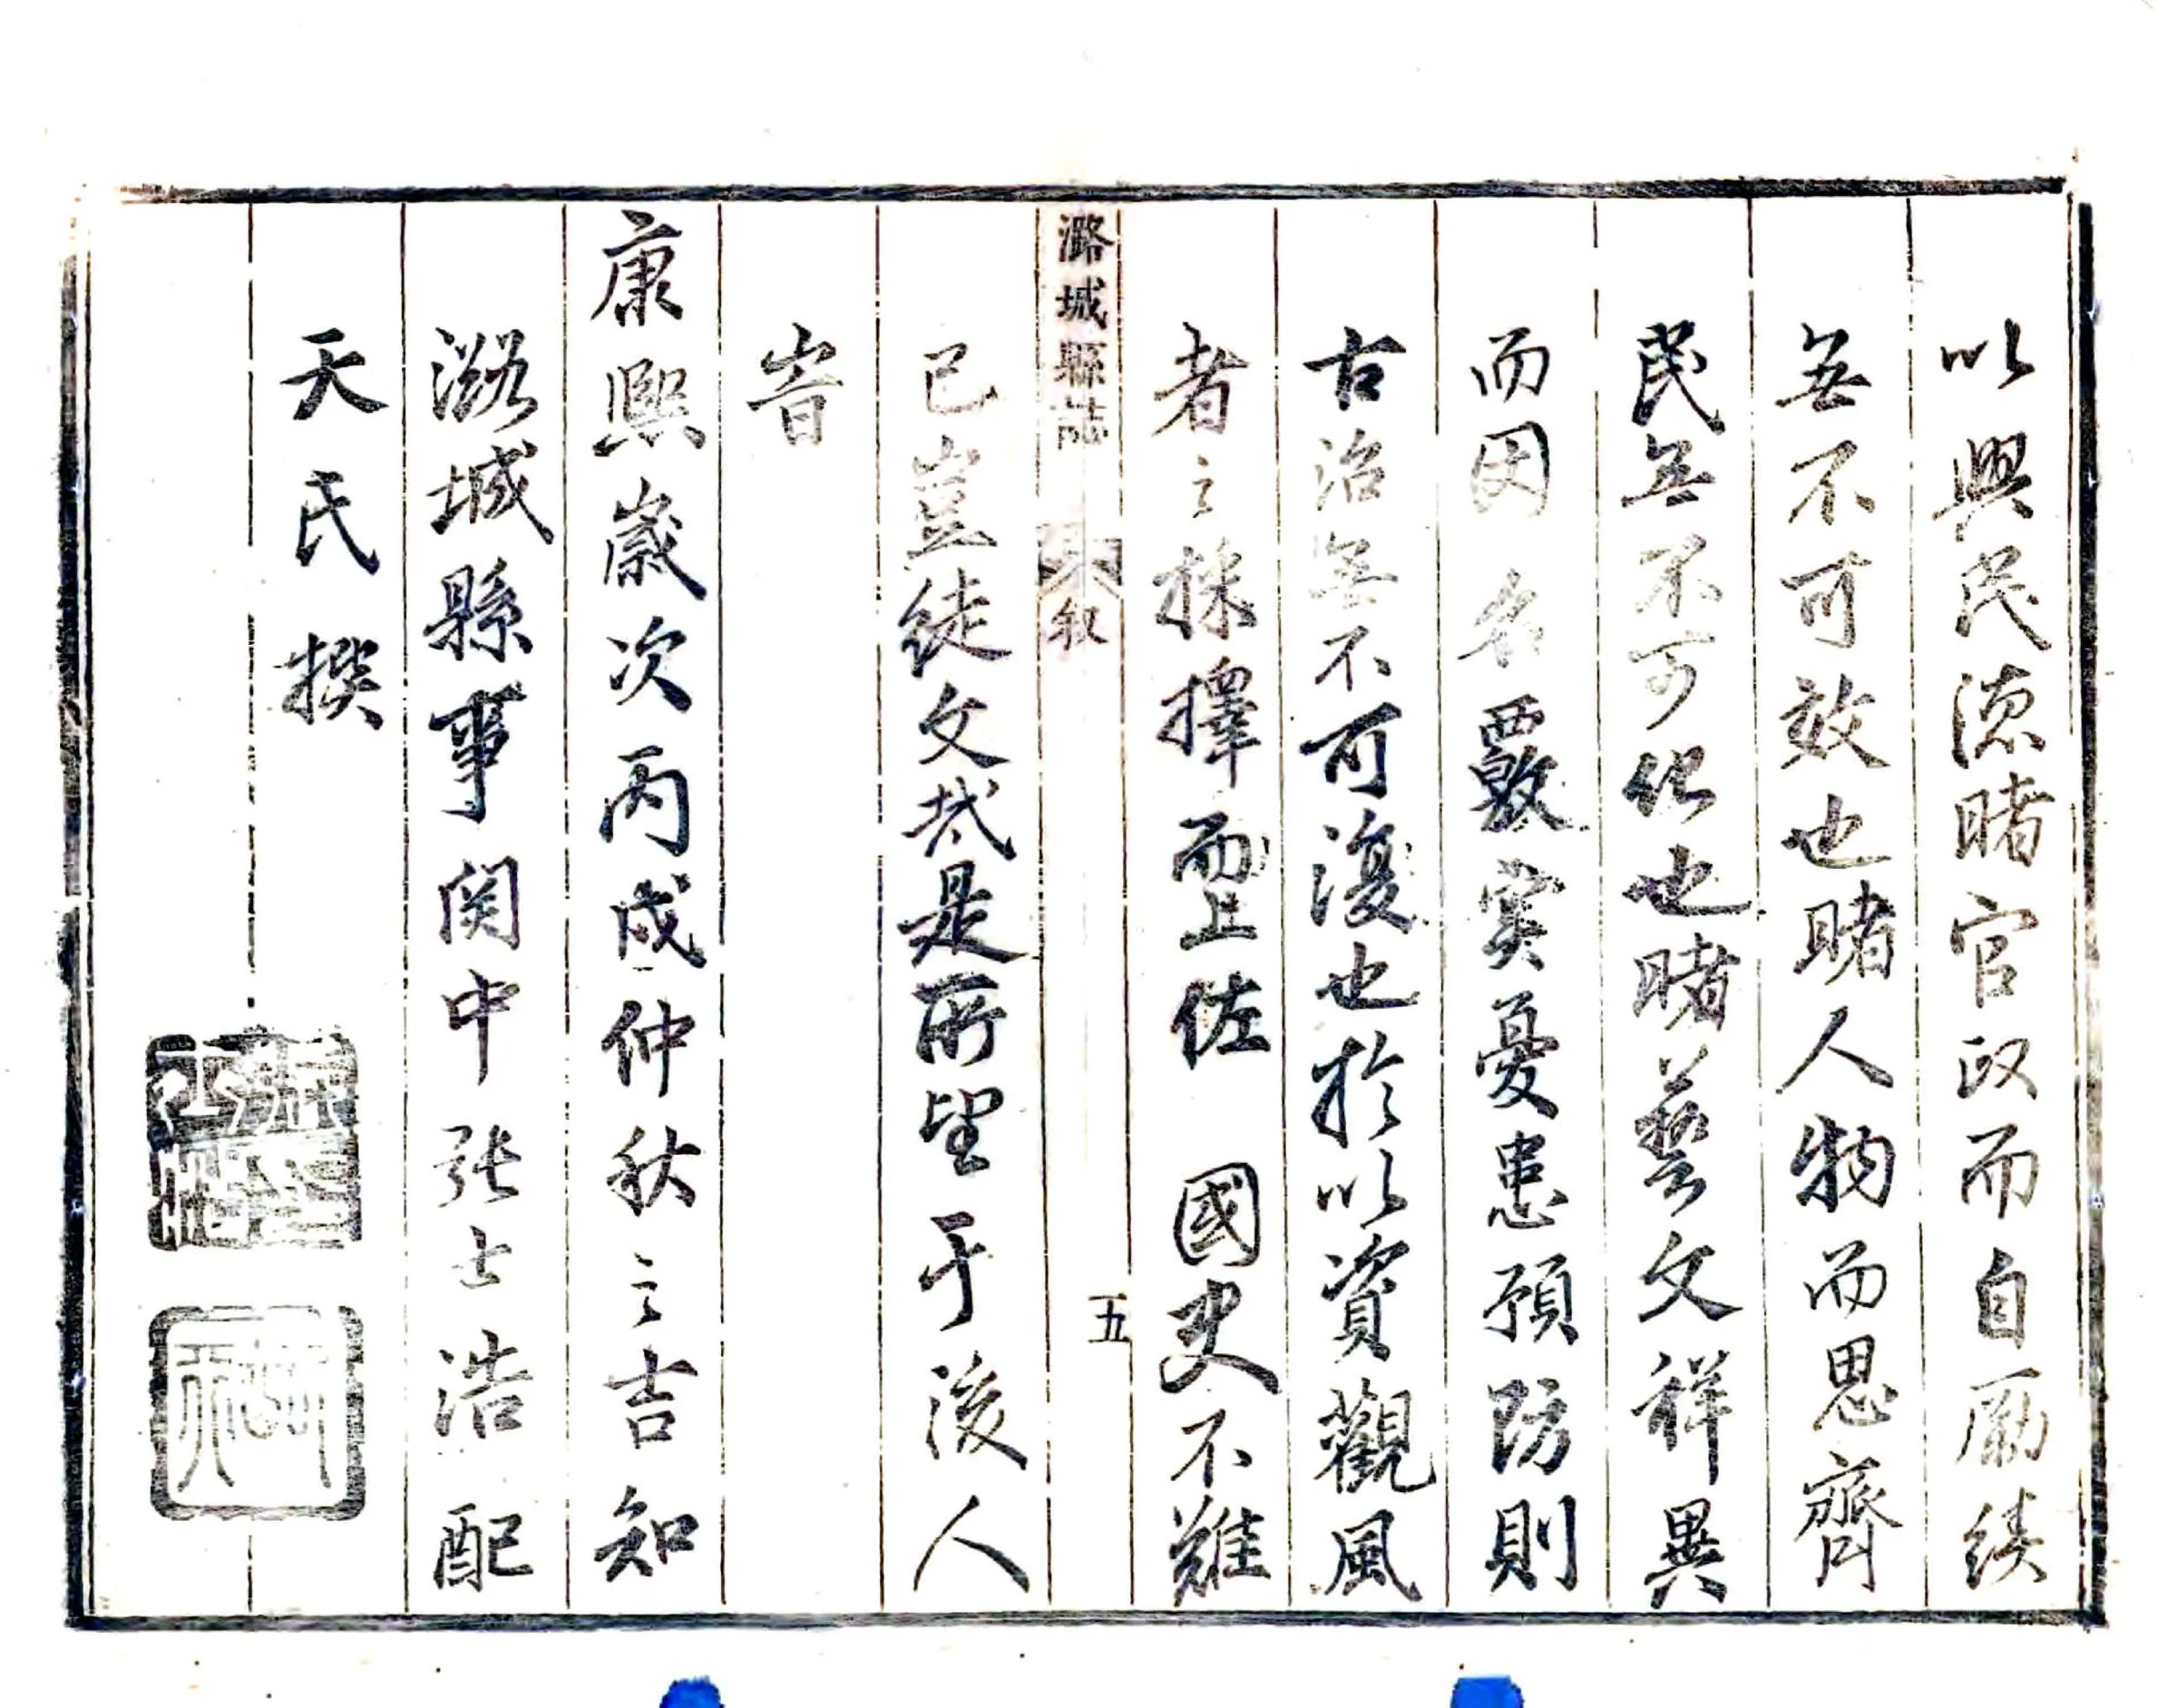 以興民德睹官政而自勵績
無不可效也睹人物而思齊
民無不可化也睹藝文祥異
而因名覈實憂患預防則
古治無不可復也於以資觀風
者之採擇而上佐 國史不難
潞城縣誌 叙 五
已豈徒文哉是所望于後人
旹
康熙歲次丙戌仲秋之吉知
潞城縣事関中張士浩配
天氏撰
張士浩印
配天